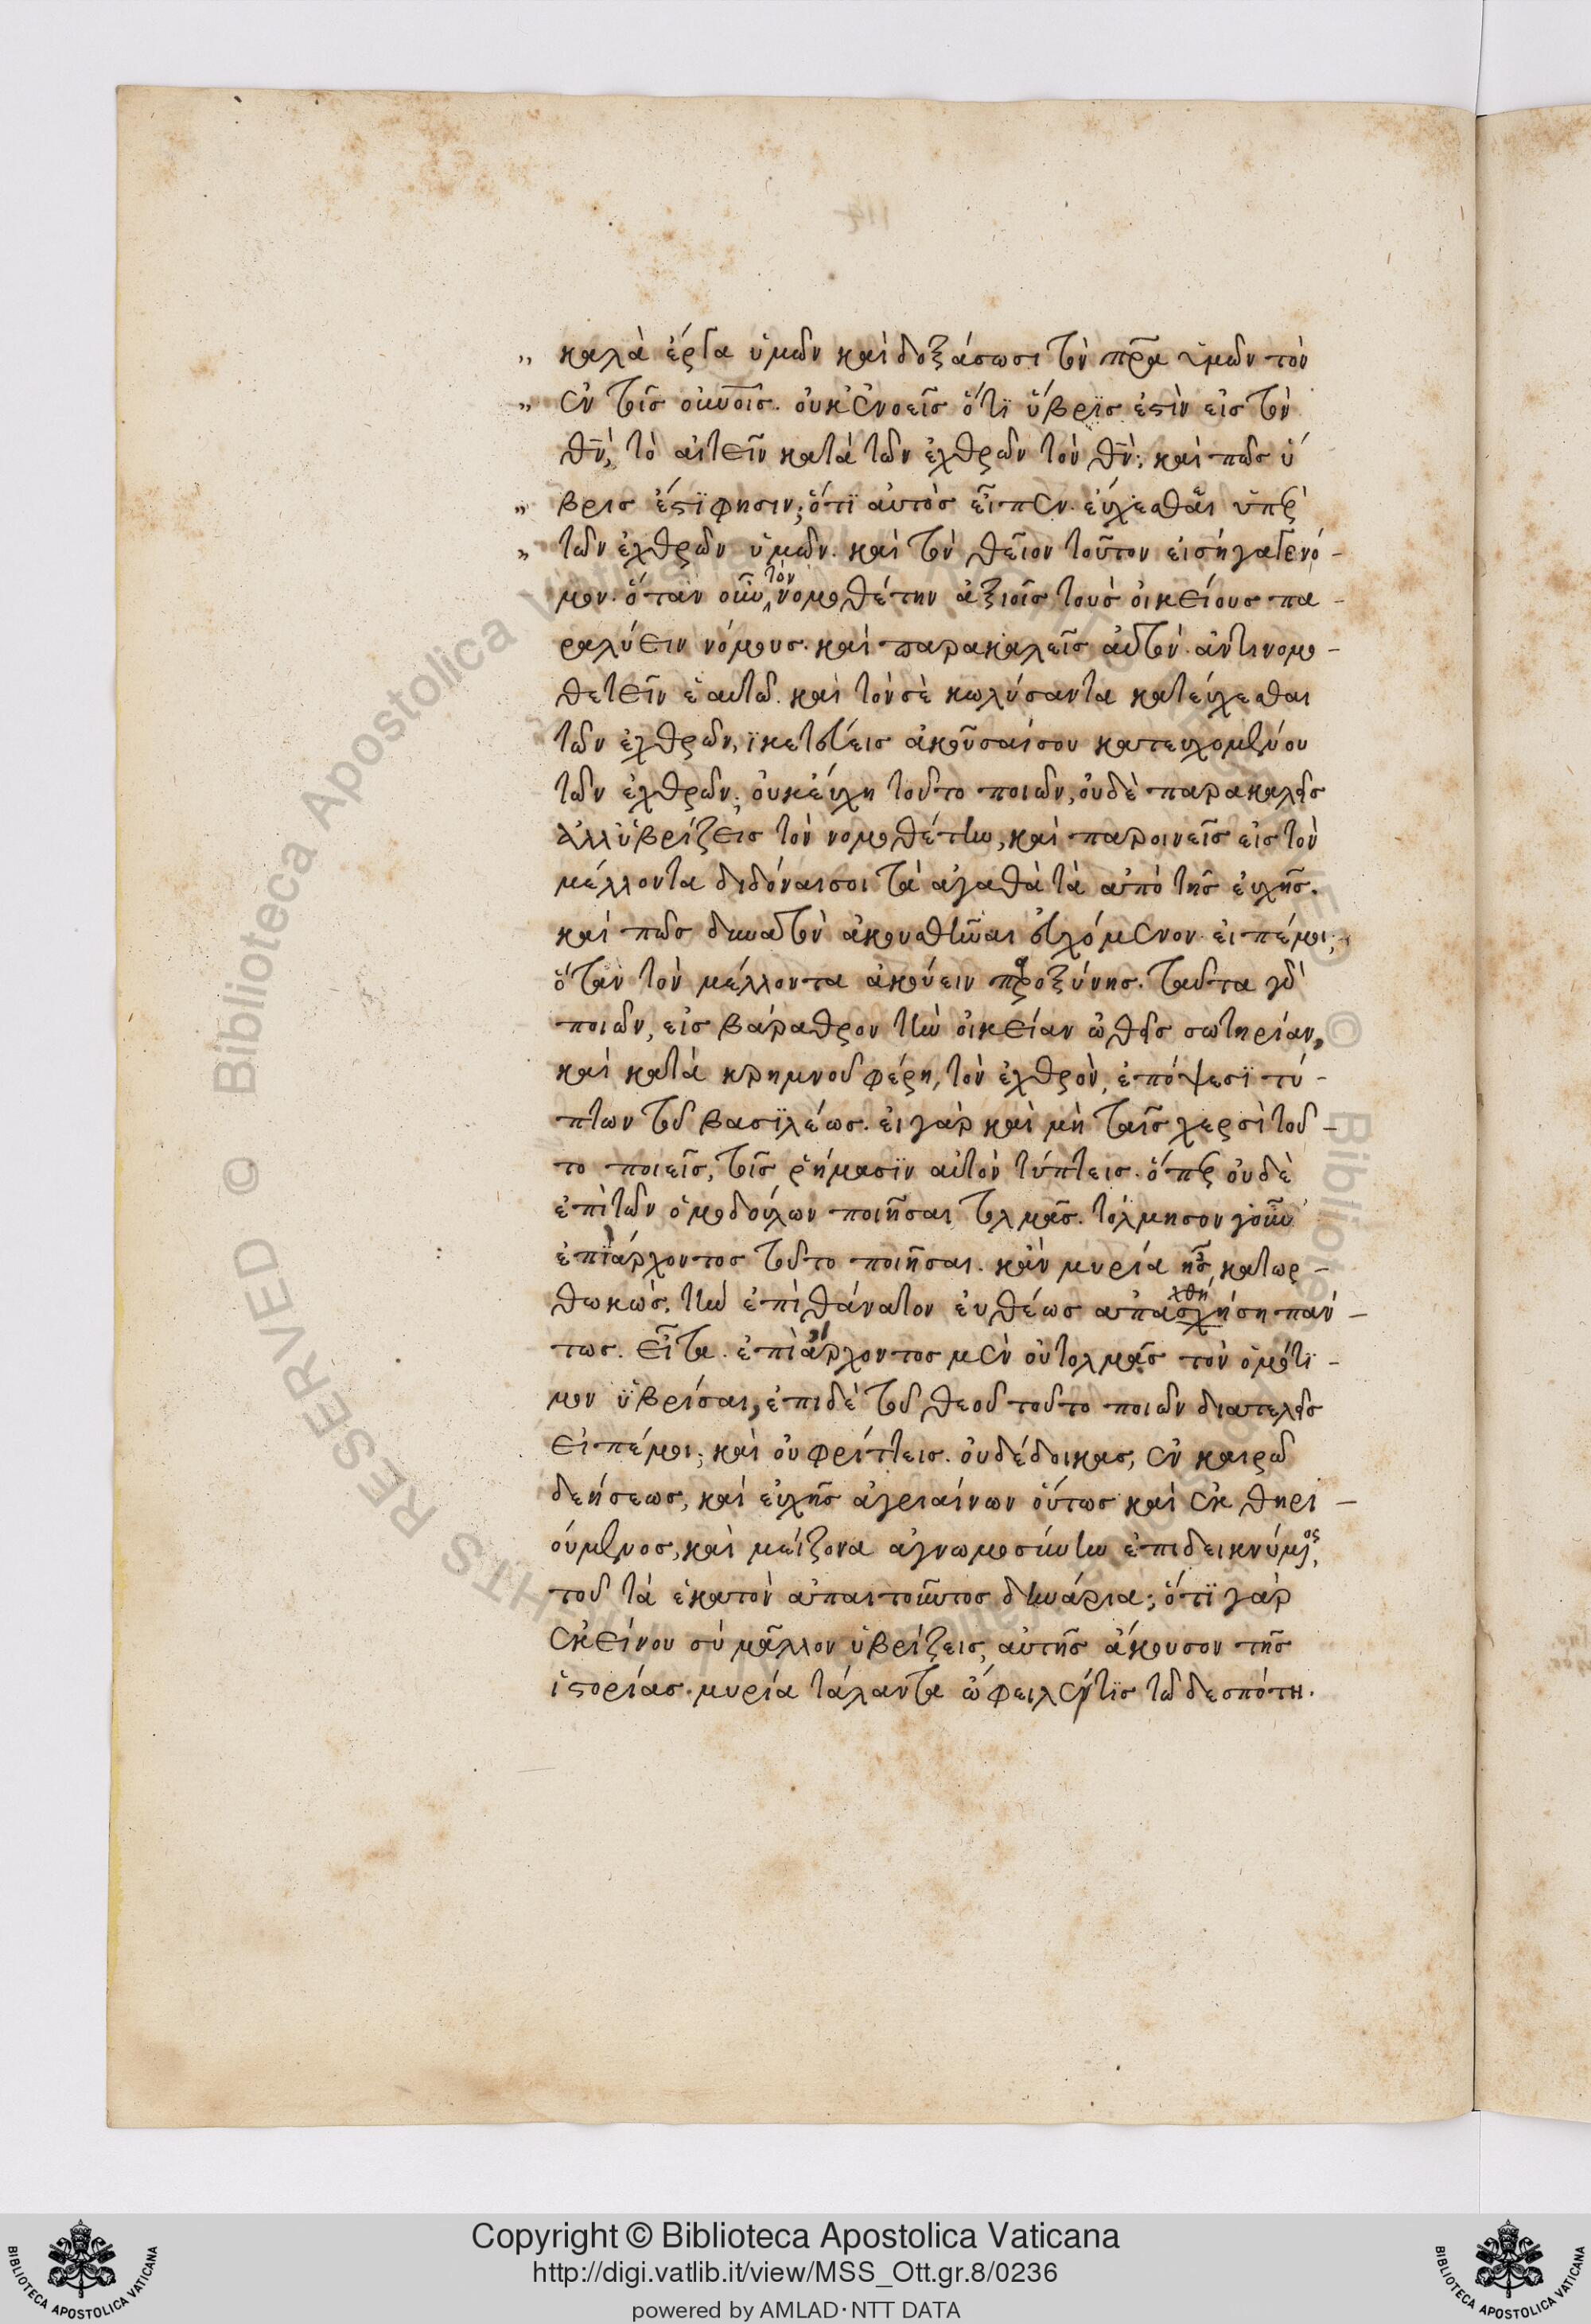 „ καλὰ ἔργα ὑμῶν καὶ δοξάσωσι τὸν πρ̅α ὑμῶν τὸν
„ ἐν τοῖς οὐν̅οις. οὐκ ἐννοεῖς ὅτϊ ὕβρϊς ἐστὶν εἰς τὸν
θ̅ν̅, τὸ αἰτεῖν κατὰ τῶν ἐχθρῶν τὸν θ̅ν̅; καὶ πῶς ὕ
„ βρις ἐστϊ φησιν; ὅτϊ αὐτὸς εἶπεν. εὔχεσθαι ὑπὲρ
„ τῶν ἐχθρῶν ὑμῶν. καὶ τὸν θεῖον τοῦτον εἰσήγαγε νό-
μον. ὅταν οὖν τὸν νομοθέτην ἀξιοῖς τοὺς οἰκείους πα-
ραλύειν νόμους. καὶ παρακαλεῖς αὐτὸν ἀντινομο-
θετεῖν ἑαυτῶ. καὶ τὸν σὲ κωλύσαντα κατεύχεσθαι
τῶν ἐχθρῶν, ϊκετεύεις ἀκοῦσαί σου κατευχομένου
τῶν ἐχθρῶν; οὐκ εὔχη τοῦτο ποιῶν, οὐδὲ παρακαλεῖς
ἀλλ' ὑβρίζεις τὸν νομοθέτην, καὶ παροινεῖς εἰς τὸν
μέλλοντα διδόναι σοι τὰ ἀγαθὰ τὰ ἀπὸ τῆς εὐχῆς.
καὶ πῶς δυνατὸν ἀκουσθῆναι εὐχόμενον εἰπέ μοι;
ὅταν τὸν μέλλοντα ἀκούειν παροξύνης. ταῦτα γὰρ
ποιῶν, εἰς βάραθρον τὴν οἰκείαν ὠθεῖς σωτηρίαν,
καὶ κατὰ κρημνοῦ φέρη, τὸν ἐχθρὸν, ἐπ' ὄψεσϊ τύ-
πτων τοῦ βασϊλέως. εἰ γὰρ καὶ μὴ ταῖς χερσὶ τοῦ-
το ποιεῖς, τοῖς ῥήμασϊν αὐτὸν τύπτεις. ὅπερ οὐδὲ
ἐπὶ τῶν ὁμοδούλων ποιῆσαι τολμᾶς. τόλμησον γοῦν
ἐπὶ ἄρχοντος τοῦτο ποιῆσαι. κἂν μυρία ἦς κατωρ-
θωκὼς, τὴν ἐπὶ θάνατον εὐθέως ἀπασχήση χθή παν-
τως. εἶτα. ἐπὶ ἄρχοντος μὲν οὐ τολμᾶς τὸν ὁμότϊ-
μον ϋβρίσαι, ἐπὶ δὲ τοῦ θεοῦ τοῦτο ποιῶν διατελεῖς
εἰπέ μοι; καὶ οὐ φρίττεις. οὐ δέδοικας, ἐν καιρῶ
δεήσεως, καὶ εὐχῆς ἀγριαίνων οὕτως καὶ ἐκθηρι-
ούμενος, καὶ μείζονα ἀγνωμοσύνην ἐπιδεικνύμενος,
τοῦ τὰ ἑκατὸν ἀπαιτοῦντος δηνάρια; ὅτϊ γὰρ
ἐκείνου σὺ μᾶλλον ὑβρίζεις, αὐτῆς ἄκουσον τῆς
ἱστορίας. μυρία τάλαντα ὤφειλέν τϊς τῶ δεσπότη.
Copyright © Biblioteca Apostolica Vaticana
http://digi.vatlib.it/view/MSS_Ott.gr.8/0236
powered by AMLAD·NTT DATA